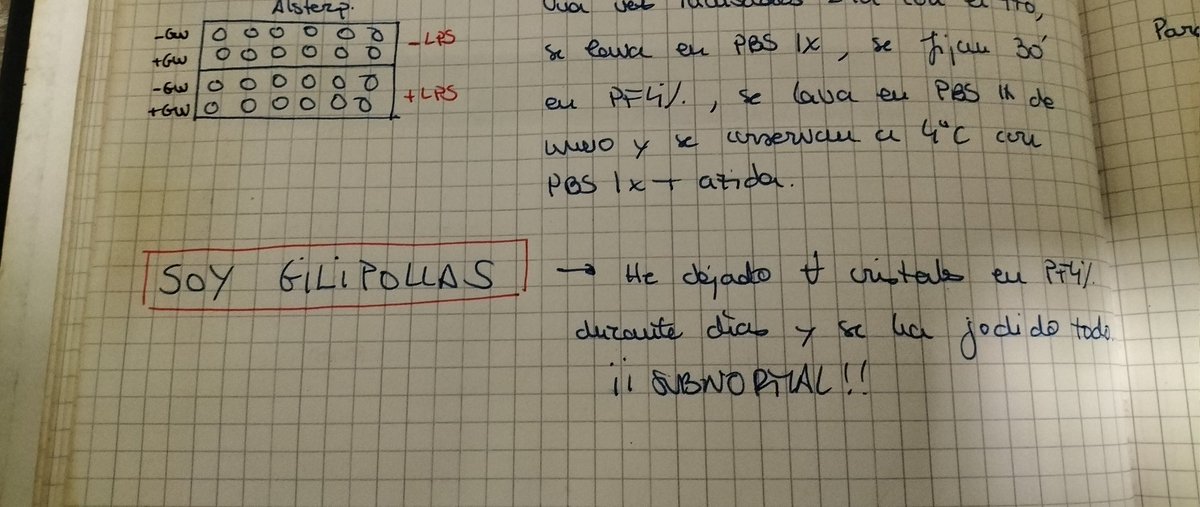 Alsterp.
-GW
+GW
-LPS
-GW
+GW
+LPS
Una vez con el tto,
se lava en PBS 1x, se fijan 30'
en PF4%, se lava en PBS 1x de
nuevo y se conservan a 4°C con
PBS 1x + azida.
Para
SOY GILIPOLLAS
→ He dejado ∀ cristales en PF4%
durante días y se ha jodido todo.
¡¡ SUBNORMAL!!